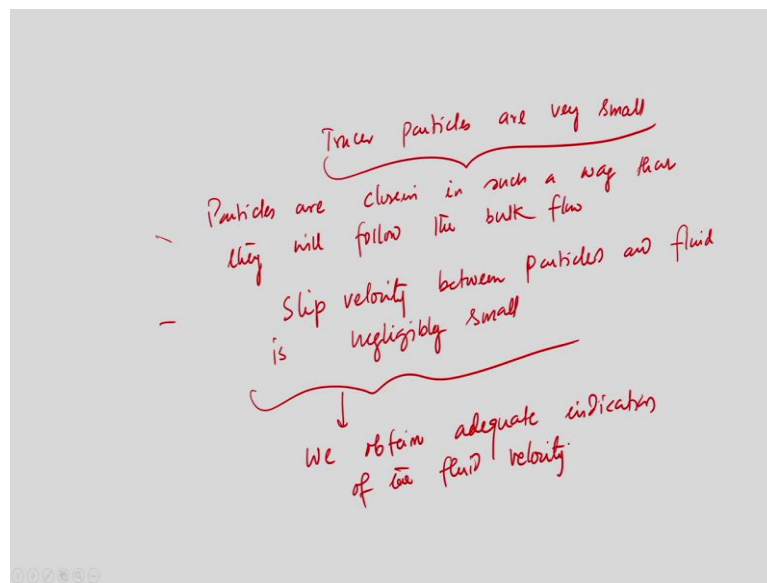 Tracer particles are very small
- Particles are chosen in such a way that
they will follow the bulk flow
- Slip velocity between particles and fluid
is negligibly small
We obtain adequate indication
of the fluid velocity.